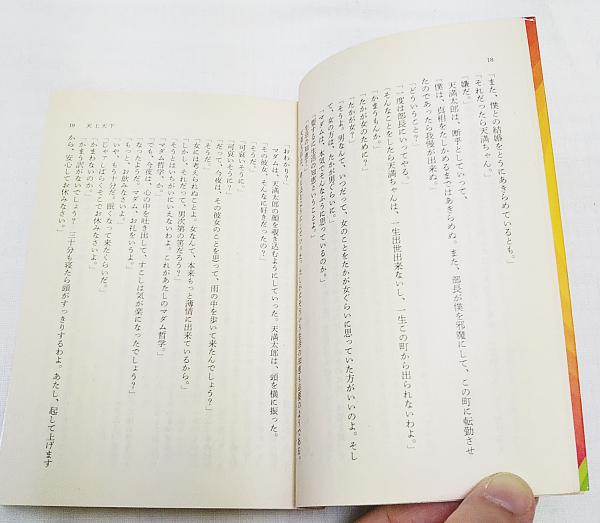 18
「まだ、僕との結婚をとうにあきらめているとも。」
「それだったら天満ちゃん。」
「嫌だ。」
天満太郎は、断乎としていって、
「僕は、真相をたしかめるまではあきらめぬ。また、部長が僕を邪魔にして、この町に転勤させ
たのであったら我慢が出来ぬ。」
「どういうこと?」
「一度は部長にいってやる。」
「そんなことをしたら天満ちゃんは、一生出世出来ないし、一生この町から出られないわよ。」
「かまうもんか。」
「たかが女のために?」
「たかが女?」
「そうよ。男なんて、いつだって、女のことをたかが女ぐらいに思っていた方がいいのよ。そし
て、女の方は、たかが男ぐらいに。」
「マダムは、本気でそんなふうに思っているのか。」
19 天上天下
「おわかり?」
マダムは、天満太郎の顔を覗き込むようにしていった。天満太郎は、頭を横に振った。
「その彼女、そんなに好きだったの?」
「そうだ。」
「可哀いそうに。」
「可哀いそうに?」
「だって、今夜は、その彼女のことを思って、雨の中を歩いて来たんでしょう?」
「そうだ。」
「女なんて考えられぬことよ。女なんて、本来もっと薄情に出来ているから。」
「しかし、それだって、男次第の笑だろう?」
「そうとはいちがいにいえないわよ。これがあたしのマダム哲学。」
「マダム哲学、か。」
「でも、今夜は、心の中を吐き出して、すこしは気が楽になったでしょう?」
「なったようだ。マダム、お礼をいうよ。」
「もっと、お飲みなさいよ。」
「いや、もう十分だ。眠くなって来たぐらいだ。」
「じゃアしばらくそこでお休みなさいよ。」
「かまわないのか。」
「かまう訳がないでしょう? 三十分も寝たら頭がすっきりするわよ。あたし、起して上げます
から、安心してお休みなさいよ。」